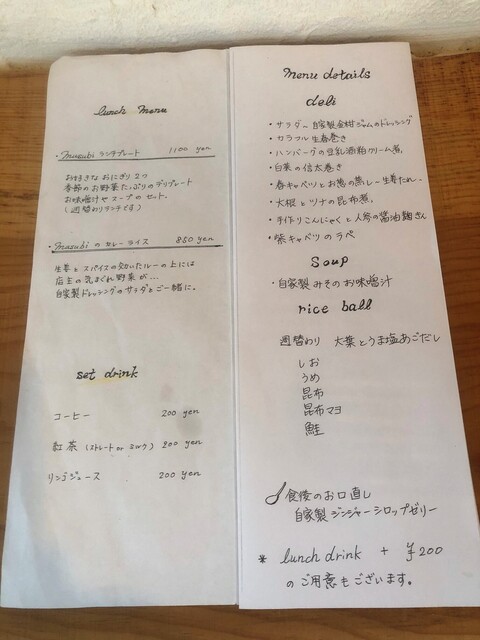 lunch menu
・musubi ランチプレート 1100 yen
お好きな おにぎり2つ
季節のお野菜たっぷりのデリプレート
お味噌汁や スープ の セット.
(週替わりランチです)
・musubi の カレーライス 850 yen
生姜 と スパイスの効いたルーの上には
店主の気まぐれ野菜が…
自家製ドレッシングのサラダとご一緒に。
set drink
コーヒー 200 yen
紅茶 (ストレート or ミルク) 200 yen
リンゴジュース 200 yen
menu details
deli
・サラダ〜自家製金柑ジャムのドレッシング
・カラフル生春巻き
・ハンバーグの豆乳酒粕クリーム煮,
・白菜の信太巻き
・春キャベツとお葱の蒸し〜生姜たれ〜
・大根とツナの昆布煮,
・手作りこんにゃくと人参の醤油麹さん
・紫キャベツのラペ
Soup
・自家製みそのお味噌汁
rice ball
週替わり 大葉とうま塩あごだし
しお
うめ
昆布
昆布マヨ
鮭
食後のお口直し
自家製ジンジャーシロップゼリー
* lunch drink + ¥200
のご用意もございます。